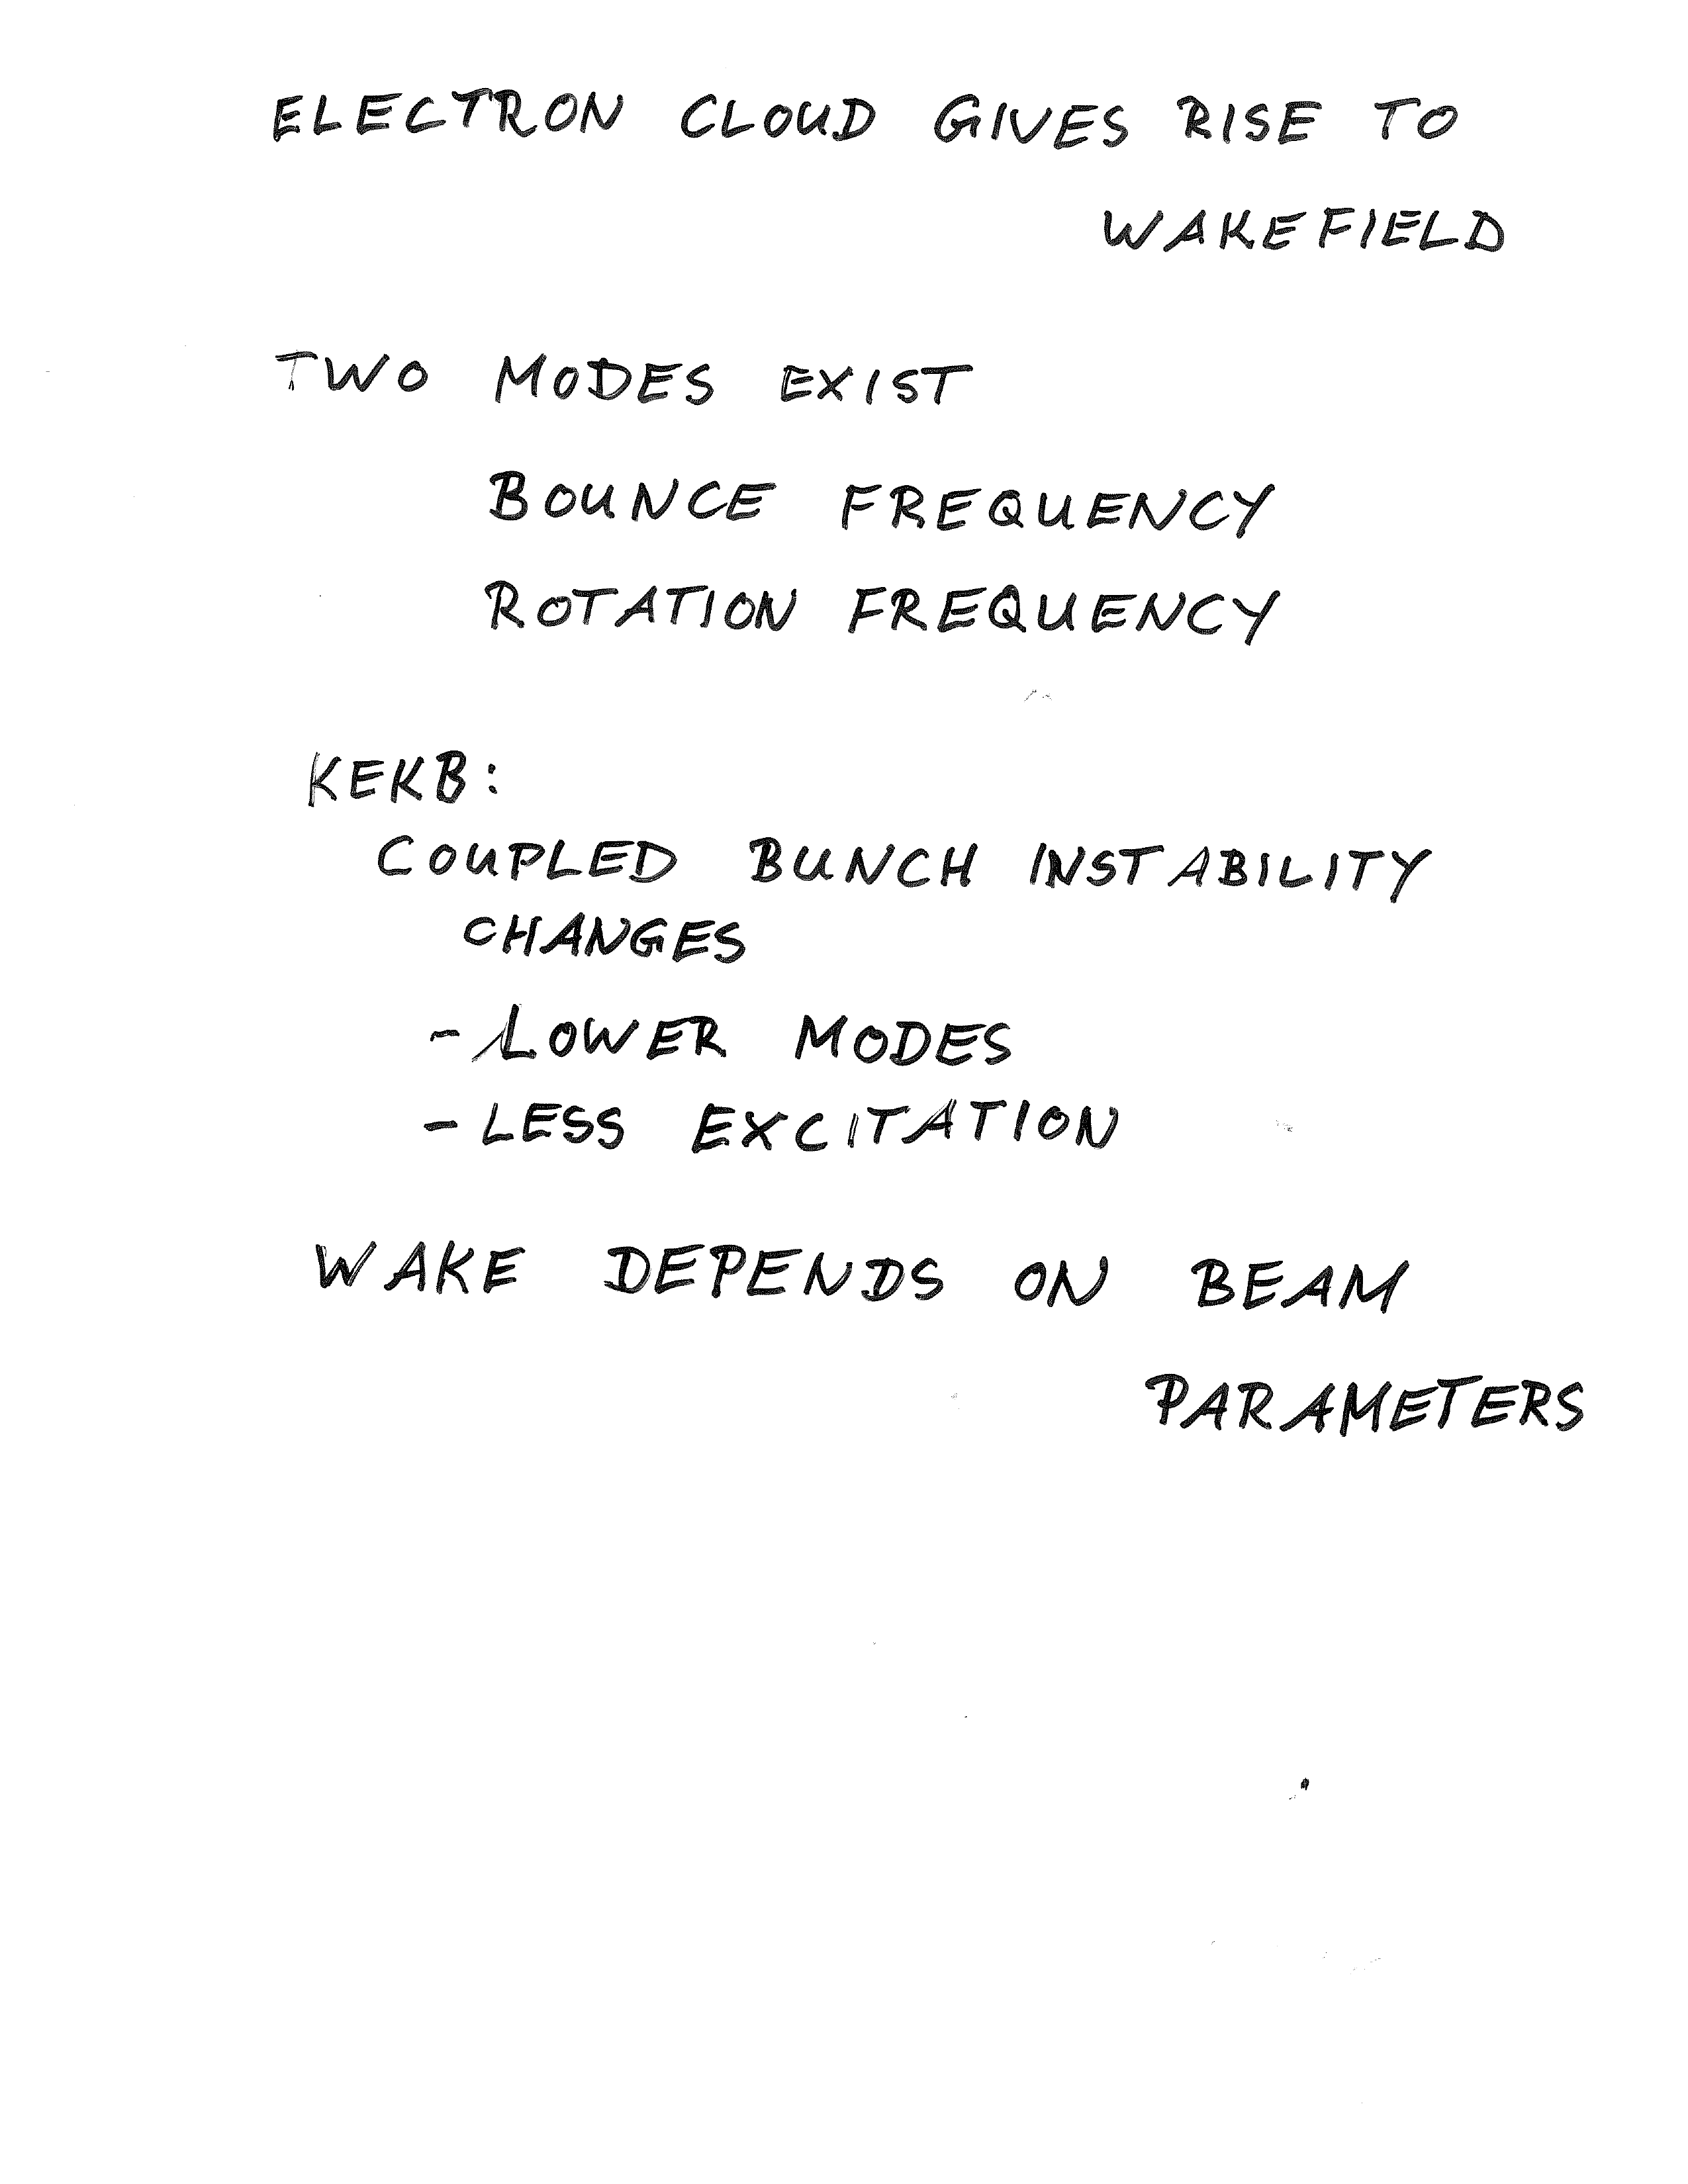 ELECTRON CLOUD GIVES RISE TO
WAKEFIELD
TWO MODES EXIST
BOUNCE FREQUENCY
ROTATION FREQUENCY
KEKB:
COUPLED BUNCH INSTABILITY
CHANGES
- LOWER MODES
- LESS EXCITATION
WAKE DEPENDS ON BEAM
PARAMETERS